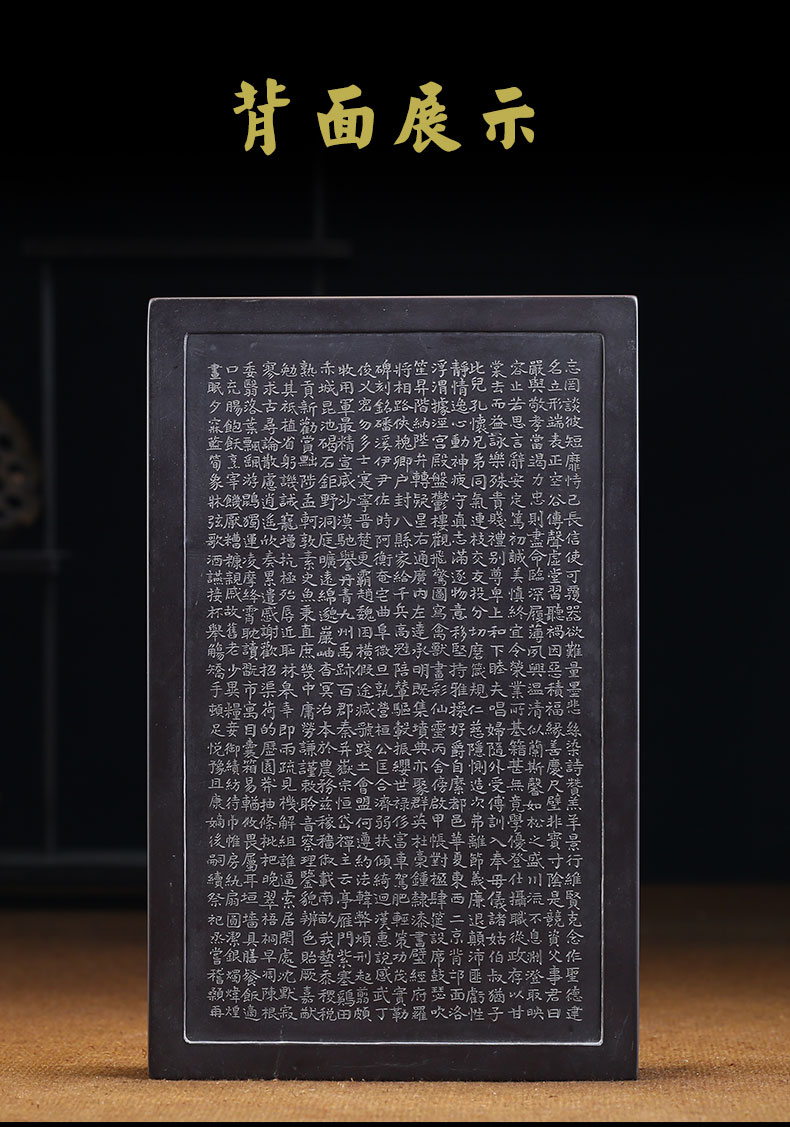 背面展示
忘罔談彼短靡恃己長信使可覆器欲難量墨悲絲染詩讚羔羊景行維賢克念作聖德建
名立形端表正空谷傳聲虛堂習聽禍因惡積福緣善慶尺璧非寶寸陰是競資父事君曰
嚴與敬孝當竭力忠則盡命臨深履薄夙興溫清似蘭斯馨如松之盛川流不息淵澄取映
容止若思言辭安定篤初誠美慎終宜令榮業所基籍甚無竟學優登仕攝職從政存以甘
棠去而益詠樂殊貴賤禮別尊卑上和下睦夫唱婦隨外受傅訓入奉母儀諸姑伯叔猶子
比兒孔懷兄弟同氣連枝交友投分切磨箴規仁慈隱惻造次弗離節義廉退顛沛匪虧性
靜情逸心動神疲守真志滿逐物意移堅持雅操好爵自縻都邑華夏東西二京背邙面洛
浮渭據涇宮殿盤鬱樓觀飛驚圖寫禽獸畫彩仙靈丙舍傍啟甲帳對楹肆筵設席鼓瑟吹
笙昇階納陛弁轉疑星右通廣內左達承明既集墳典亦聚群英杜稾鍾隸漆書壁經府羅
將相路俠槐卿户封八縣家給千兵高冠陪輦驅轂振纓世祿侈富車駕肥輕策功茂實勒
碑刻銘磻溪伊尹佐時阿衡奄宅曲阜微旦孰營桓公匡合濟弱扶傾綺迴漢惠說感武丁
俊乂密勿多士寔寧晉楚更霸趙魏困橫假途滅虢踐土會盟何遵約法韓弊煩刑起翦頗
牧用軍最精宣威沙漠馳譽丹青九州禹跡百郡秦并嶽宗恒岱禪主云亭雁門紫塞鷄田
赤城昆池碣石鉅野洞庭曠遠綿邈巖岫杳冥治本於農務茲稼穡俶載南畝我藝黍稷税
熟貢新勸賞黜陟孟軻敦素史魚秉直庶幾中庸勞謙謹敕聆音察理鑒貌辨色貽厥嘉猷
勉其祗植省躬譏誡寵增抗極殆辱近恥林皋幸即兩疏見機解組誰逼索居閑處沈默寂
寥求古尋論散慮逍遙欣奏累遣慼謝歡招渠荷的歷園莽抽條枇杷晚翠梧桐早凋陳根
委翳落葉飄颻游鵾獨運凌摩絳霄耽讀翫市寓目囊箱易輶攸畏屬耳垣墻具膳餐飯適
口充腸飽飫烹宰饑厭糟糠親戚故舊老少異糧妾御績紡侍巾帷房紈扇圓潔銀燭煒煌
晝眠夕寐藍筍象牀弦歌酒讌接杯舉觴矯手頓足悅豫且康嫡後嗣續祭祀烝嘗稽顙再